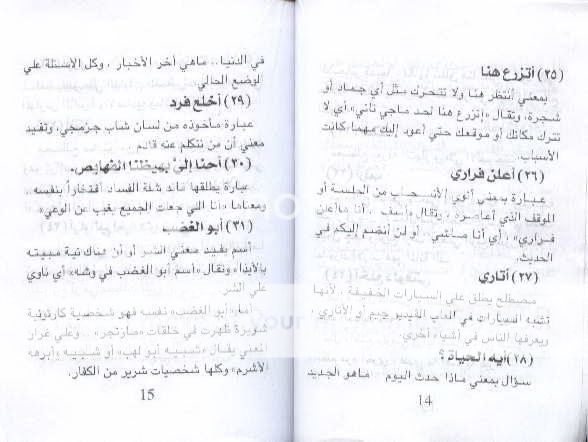 (٢٥) أتزرع هنا
بمعني أنتظر هنا ولا تتحرك مثل أي جماد أو
شجرة، وتقال «إتزرع هنا لحد ماجي تاني» أي لا
تترك مكانك أو موقعك حتي أعود إليك مهما كانت
الأسباب.
(٢٦) أعلن فراري
عبارة بمعني أنوي الأنسحاب من الجلسة أو
الموقف الذي أعاصره، وتقال
فراري»، أي أنا ماشي، أو لن أنضم إليكم في
الحديث.
(٢٧) أتاري
مصطلح يطلق علي السيارات الخفيفة، لأنها
تشبه السيارات في ألعاب الفيديو جيم أو الأتاري،
ويعرفها الناس في أشياء أخري.
(٢٨) أيه الحياة؟
سؤال بمعني ماذا حدث اليوم ماهو الجديد
14
في الدنيا.. ماهي أخر الأخبار، وكل الأسئلة علي
الوضع الحالي
(٢٩) أخلع فرد
عبارة مأخوذه من لسان شاب جزمجي، وتفيد
معني أن من نتكلم عنه قادم..
(٣٠) أحنا إللي بهيظنا الهايص.
عبارة يطلقها قائد شلة الفساد أفتخاراً بنفسه..
ومعناها «انا اللي جعلت الجميع يغيب عن الوعي»
(٣١) أبو الغضب
أسم يفيد معني الشر أو أن هناك نية مبيته
بالأيذاء وتقال «أسم أبو الغضب في وشه» أي ناوي
علي الشر
أما «أبو الغضب» نفسه فهو شخصية كارتونية
شريرة ظهرت في حلقات «مازنجر».. وعلي غرار
المعني يقال «شبيه أبو لهب» أو شبيه «أبرهه
الأشرم» وكلها شخصيات شرير من الكفار.
15